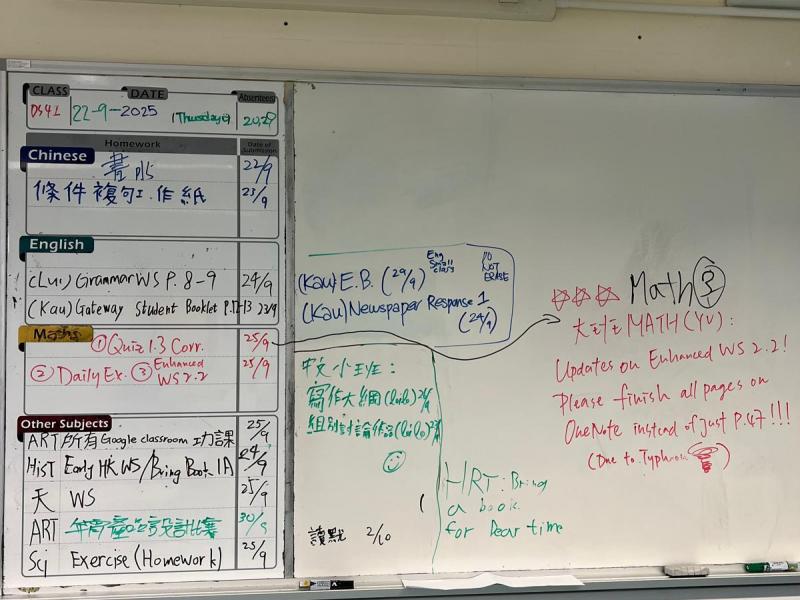 CLASS DATE Absentees
DS41 22-9-2025 (Thursday) 20,29
Homework Date of Submission
Chinese
書 22/9
條件複句工作紙 23/9
English
(Lui) Grammar WS P. 8-9 24/9
(Kau) Gateway Student Booklet P.12-13 23/9
Maths
① Quiz 1.3 Corr. 25/9
② Daily Ex. ③ Enhanced WS 2.2 25/9
Other Subjects
ART 所有Google classroom功課 25/9
HIST Early HK WS/Bring Book 1A 24/9
天 WS 25/9
ART 設計 30/9
Sci Exercise (Homework) 25/9
Eng Small class
DO NOT ERASE
(Kau) E.B. (29/9)
(Kau) Newspaper Response 1
(24/9)
中文小班:
寫作大綱
組別討論作品
讀默 2/10
HRT: Bring
a book
for Dear time
Math ③
MATH (YU):
Updates on Enhanced WS 2.2!
Please finish all pages on
OneNote instead of just P.47!!!
(Due to Typhoon